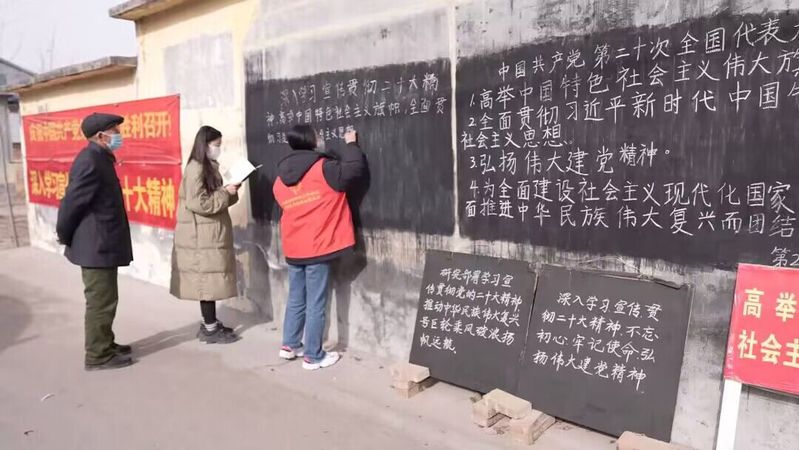 胜利召开!
深入学习宣
二十大精神
深入学习宣传贯彻二十大精
神,高举中国特色社会主义旗帜,全面贯
彻习
中国共产党第二十次全国代表
1.高举中国特色社会主义伟大
2.全面贯彻习近平新时代中国
社会主义思想。
3.弘扬伟大建党精神。
4.为全面建设社会主义现代化国家
面推进中华民族伟大复兴而团结
第2
研究部署学习宣
传贯彻党的二十大精神
推动中华民族伟大复兴
号巨轮乘风破浪扬
帆远航.
深入学习宣传贯
彻二十大精神,不忘
初心牢记使命,弘
扬伟大建党精神
高举
社会主